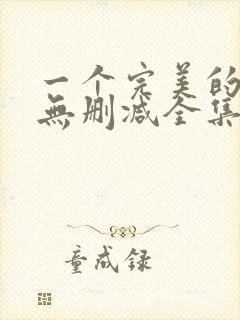 一个完美的
無删减全集
童成録